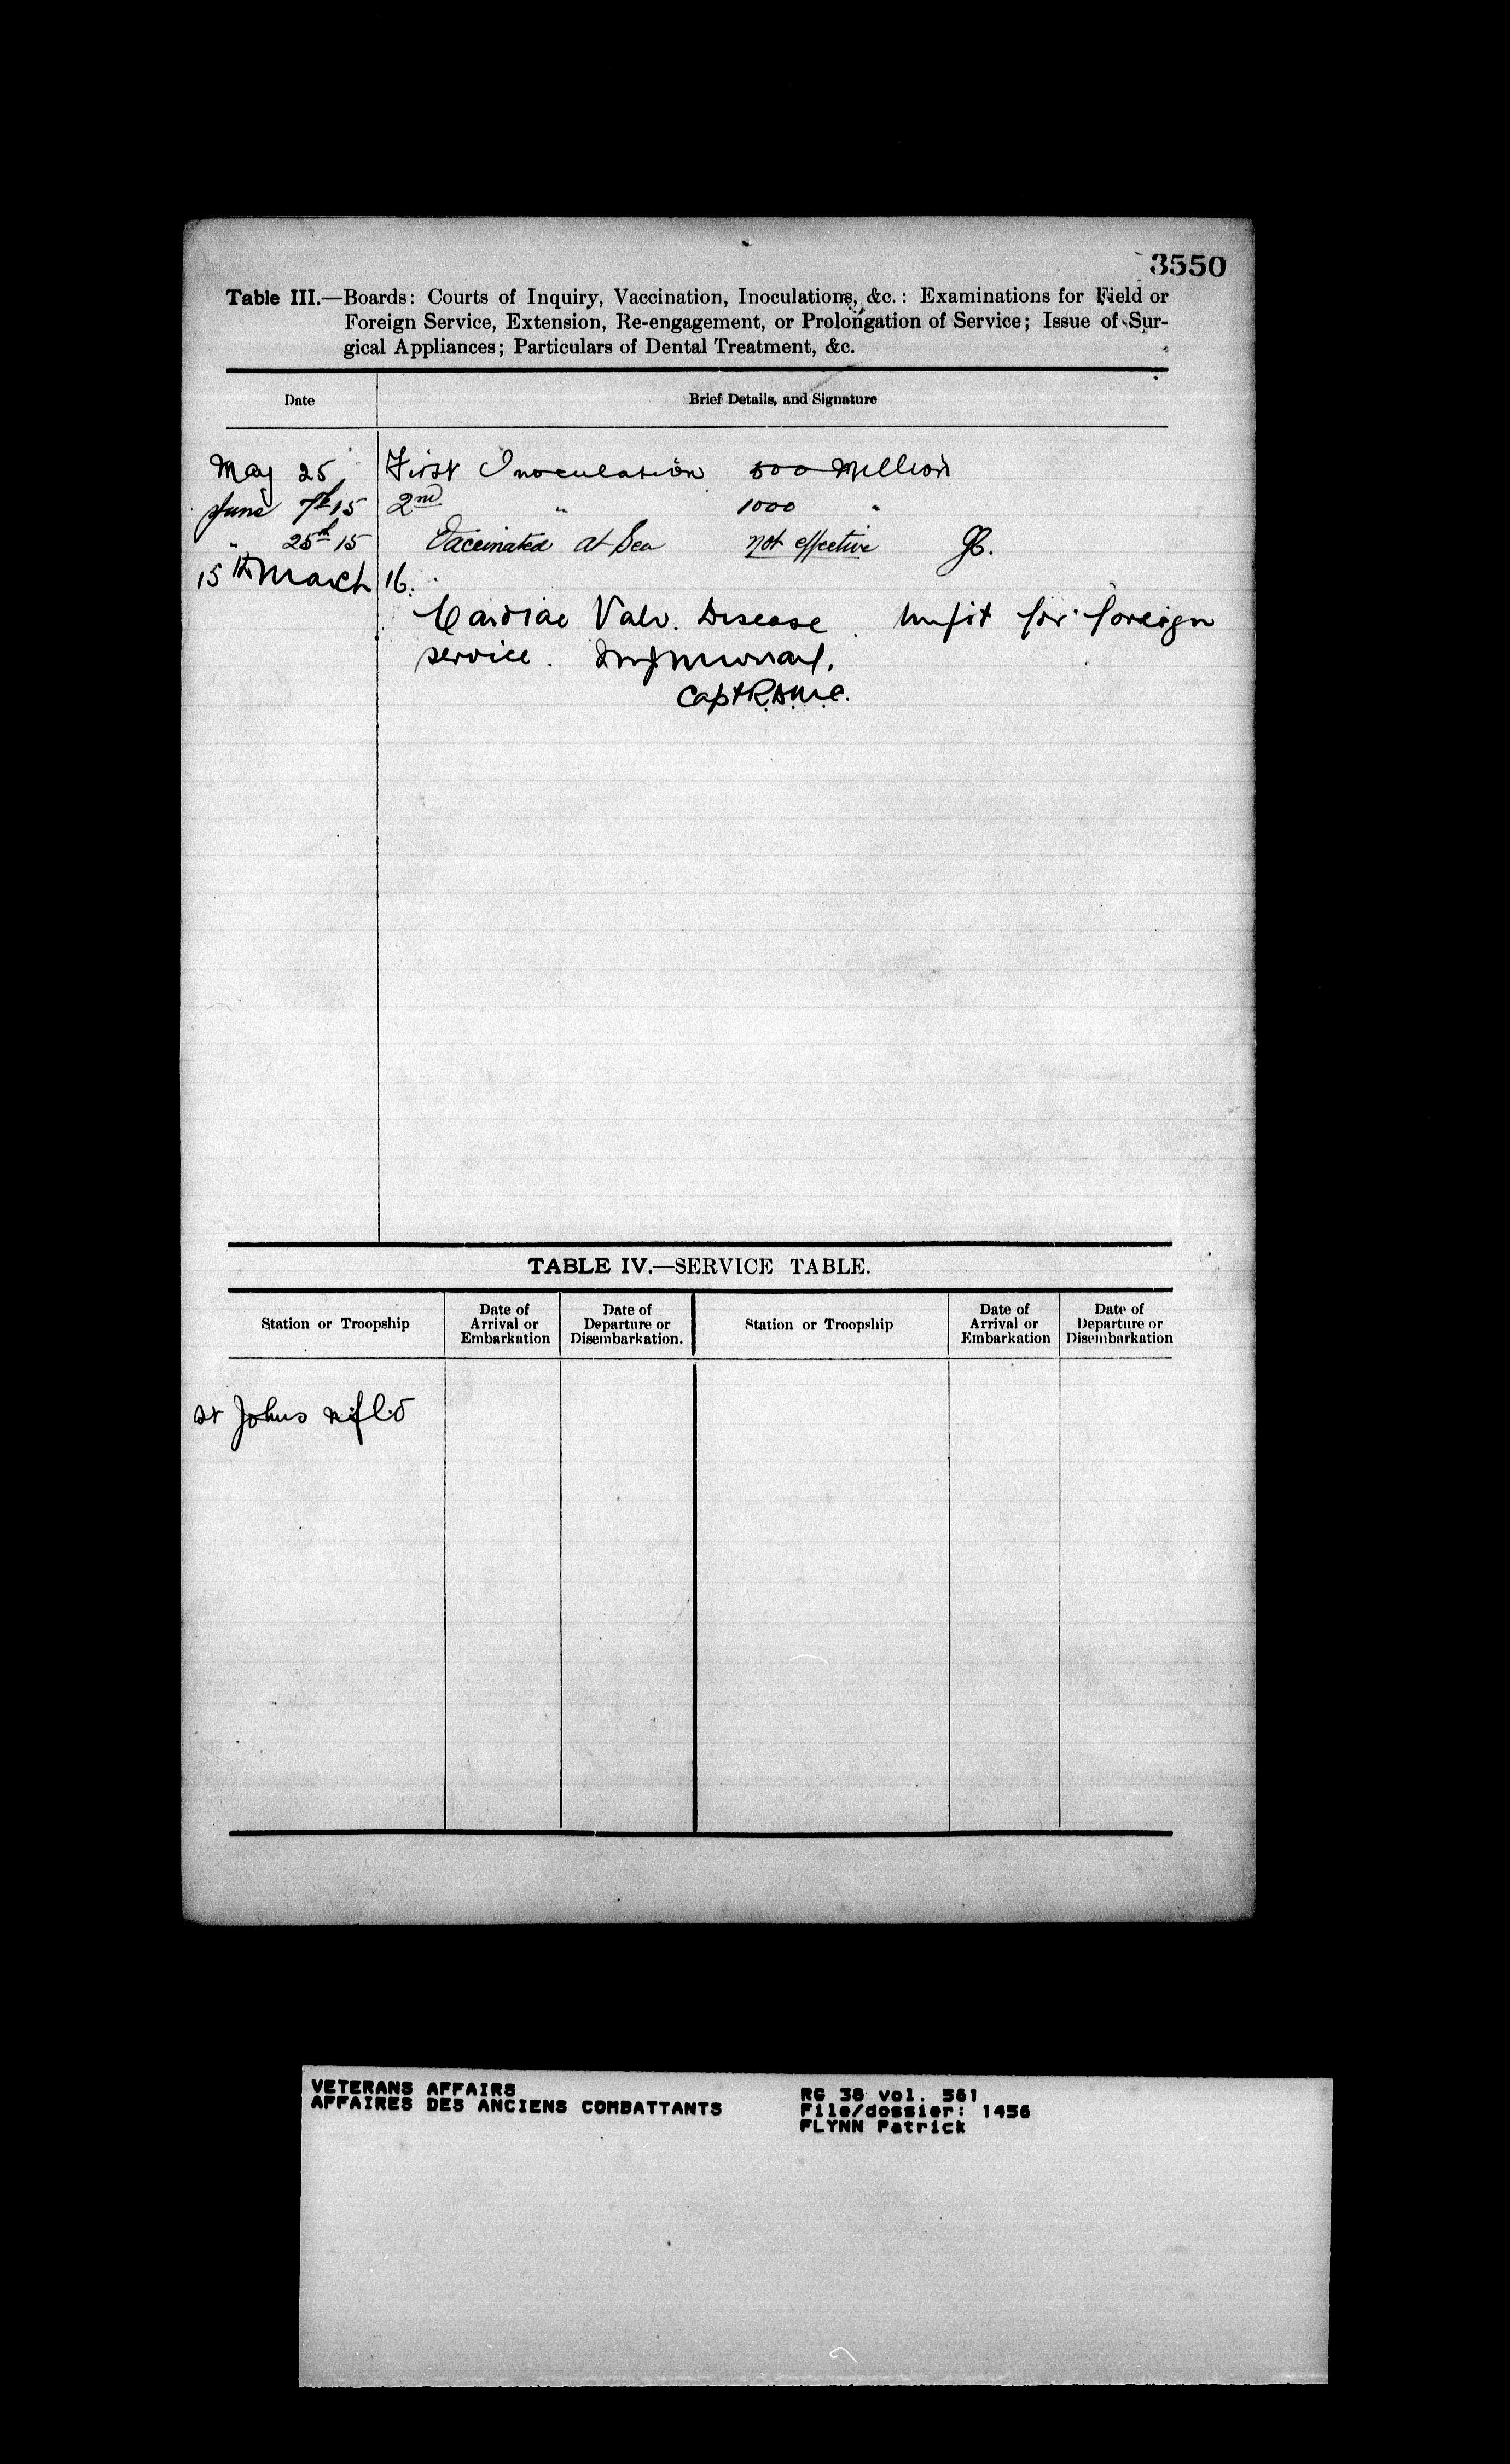 3550
Table III.—Boards: Courts of Inquiry, Vaccination, Inoculations, &c.: Examinations for Field or
Foreign Service, Extension, Re-engagement, or Prolongation of Service; Issue of Sur-
gical Appliances; Particulars of Dental Treatment, &c.
Date Brief Details, and Signature
May 25 First Inoculation 500 Million
June 7th 15 2nd " 1000 "
" 25th 15 Vaccinated at Sea not effective
15th March 16.
Cardiac Valv. Disease. Unfit for foreign
service.
Capt R.A.M.C.
TABLE IV.—SERVICE TABLE.
Station or Troopship Date of Arrival or Embarkation Date of Departure or Disembarkation. Station or Troopship Date of Arrival or Embarkation Date of Departure or Disembarkation
St Johns nfld
VETERANS AFFAIRS RG 38 vol. 561
AFFAIRES DES ANCIENS COMBATTANTS File/dossier: 1456
FLYNN Patrick